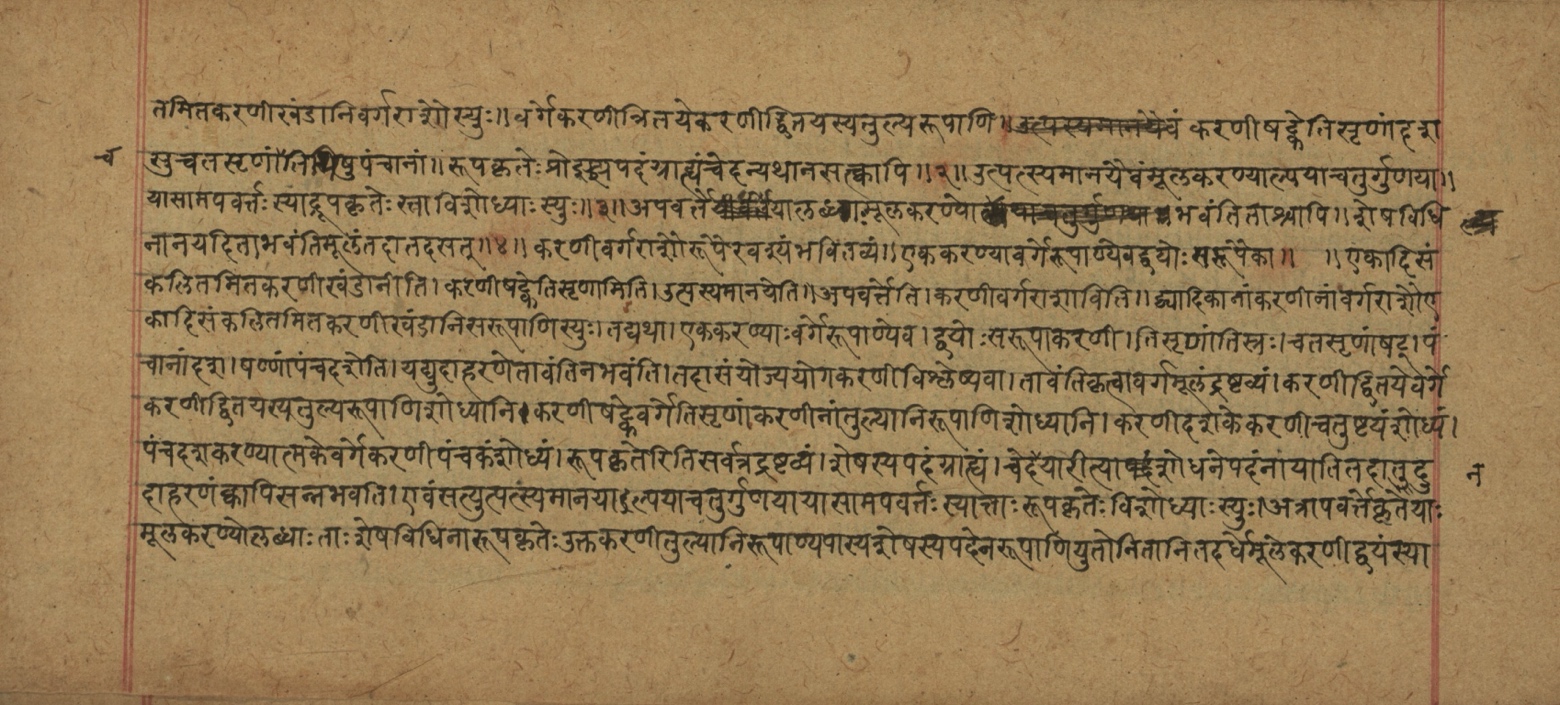 तमितकरणीखंडानिवर्गराशेोस्युः॥वर्गेकरणीत्रितयेकरणीद्वितयस्यतुल्यरूपाणि॥ करणीषट्केतिसृणांदश
च
सुचतसृणांतिथिषुपंचानां॥रूपकृतेःप्रोझ्झ्यपदंग्राह्यंचेदन्यथानसत्क्वापि॥२॥उत्पत्स्यमानयैवंमूलकरण्याल्पयाचतुर्गुणया॥
यासामपवर्त्तःस्याद्रूपकृतेःस्ताविशोध्याःस्युः॥३॥अपवर्त्ते यालब्धामूलकरण्यो भवंतिताश्चापि॥शेषविधि
नानयदिताभवंतिमूलंतदातदसत्॥४॥करणीवर्गराशेोरूपैरवश्यंभवितव्यं॥एककरण्यावर्गेरूपाण्येवद्वयोःसरूपैका॥ ॥एकादिसं
कलितमितकरणीखंडानीति।करणीषट्केतिसृणामिति।उत्पत्स्यमानयेति॥अपवर्त्तेति।करणीवर्गराशाविति॥द्व्यादिकानांकरणीनांवर्गराशेोए
कादिसंकलितमितकरणीखंडानिसरूपाणिस्युः।तद्यथा।एककरण्याःवर्गेरूपाण्येव।द्वयोःसरूपाकरणी।तिसृणांतिस्रः।चतसृणांषट्।पं
चानांदश।षण्णांपंचदशेति।यद्युदाहरणेतावंतिनभवंति।तदासंयोज्ययोगकरणीविश्लेष्यवा।तावंतिकृत्वावर्गमूलंद्रष्टव्यं।करणीद्वितयेवर्गे
करणीद्वितयस्यतुल्यरूपाणिशोध्यानि।करणीषट्केवर्गेतिसृणांकरणीनांतुल्यानिरूपाणिशोध्यानि।करणीदशकेकरणीचतुष्टयंशोध्यं।
पंचदशकरण्यात्मकेवर्गेकरणीपंचकंशोध्यं।रूपकृतेरितिसर्वत्रद्रष्टव्यं।शेषस्यपदंग्राह्यं।चेद् शोधनेपदंनायातितदा
न
दाहरणंक्वापिसन्नभवति।एवंसत्युत्पत्स्यमानयाऽल्पयाचतुर्गुणयायासामपवर्त्तःस्यात्ताःरूपकृतेःविशोध्याःस्युः।अत्रापवर्त्तेकृतेयाः
मूलकरण्योलब्धाःताःशेषविधिनारूपकृतेःउक्तकरणीतुल्यानिरूपाण्यपास्यशेषस्यपदेनरूपाणियुतोनितानितदर्धेमूलेकरणीद्वयंस्या